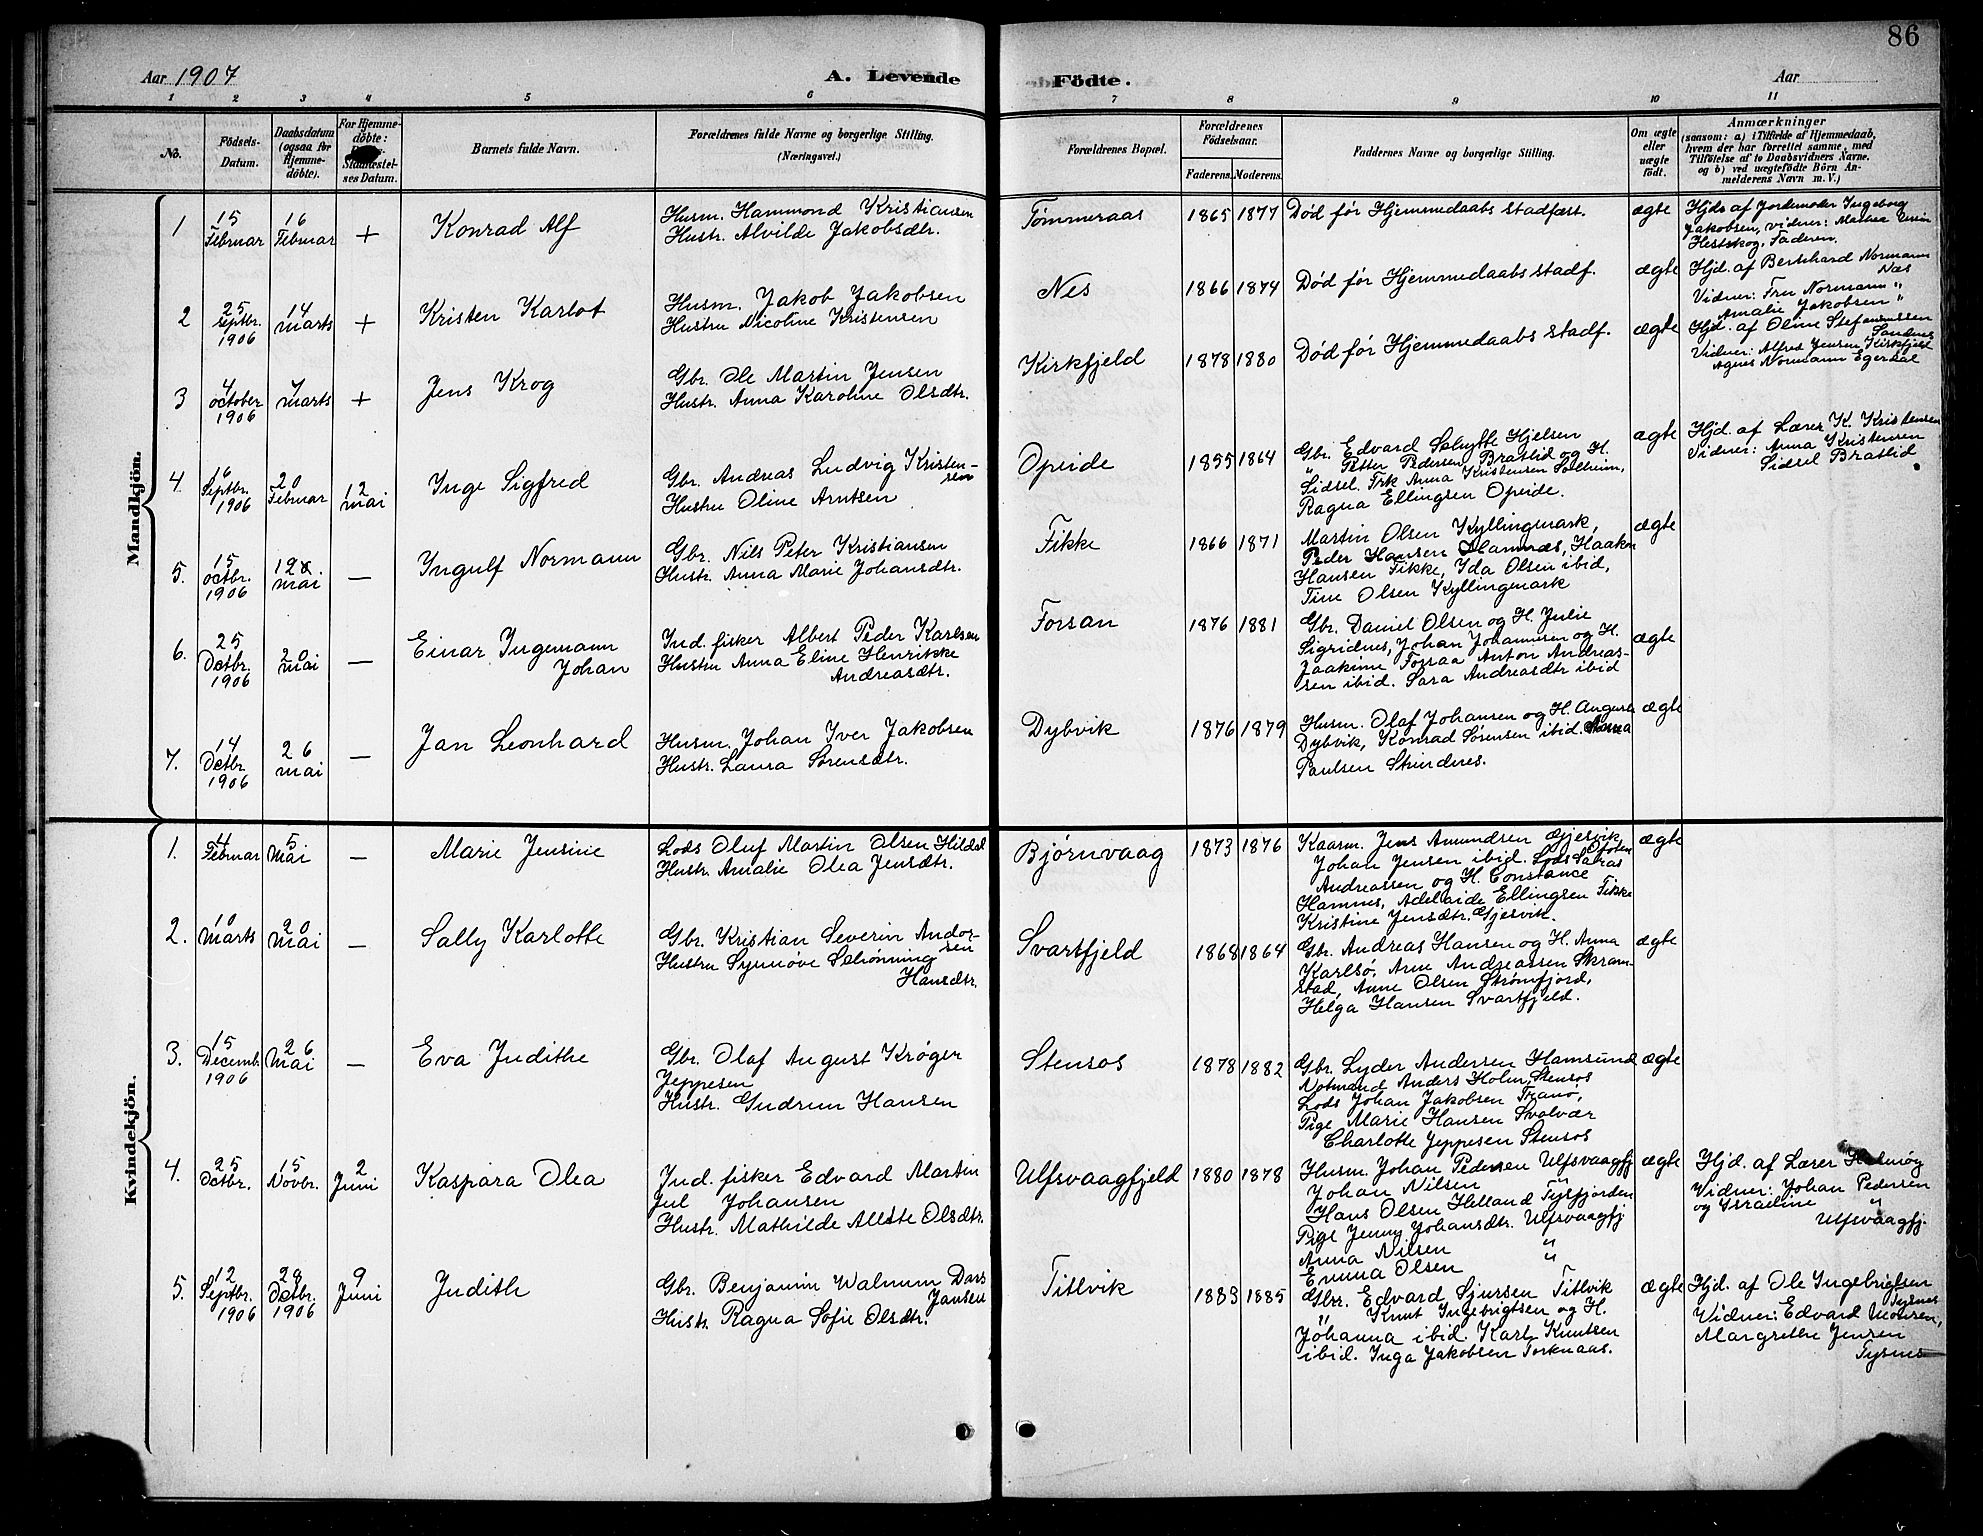 86
Aar 1907
A. Levende
Födte.
Aar
1 2 3 4 5 6 7 8 9 10 11
No.
Födsels-
Datum.
Daabsdatum
(ogsaa for
Hjemme-
döbte).
For Hjemme-
döbte:
Stadfæstel-
ses Datum.
Barnets fulde Navn.
Forældrenes fulde Navne og borgerlige Stilling.
(Næringsvei.)
Forældrenes Bopæl.
Forældrenes
Födselsaar.
Faderens. Moderens.
Faddernes Navne og borgerlige Stilling.
Om ægte
eller
uægte
födt.
Anmærkninger
(saasom: a) i Tilfælde af Hjemmedaab,
hvem der har forrettet samme, med
Tilföielse af to Daabsvidners Navne.
og b) ved uægtefödte Börn An-
melderens Navn m. V.)
Mandkjön.
1
15
Februar
16
Februar
+
Konrad Alf
Husm. Hammond Kristiansen
Hustr. Alvilde Jakobsdtr.
Tommeraas
1865 1877
Død før Hjemmedaabs stadfæst.
ægte
Hjds af Jordemoder Ingeborg
Jakobsen, vidner: Martha
Hestskog, Faderen.
2
25
Septbr.
1906
14
marts
+
Kristen Karlot
Husm. Jakob Jakobsen
Hustru Nicoline Kristensen
Nes
1866 1874
Død før Hjemmedaabs stadf.
ægte
Hjd. af Bernhard Normann
Næs
Vidner: Fru Normann "
Amalie Jakobsen "
3
4
october
1906
7
marts
+
Jens Krog
Gbr. Ole Martin Jensen
Hustr. Anna Karoline Olsdtr.
Kirkfjeld
1878 1880
Død før Hjemmedaabs stadf.
ægte
Hjd. af Oline Stefanussen
Sandnes
Vidner: Alfred Jensen Kirkfjeld
Agnes Normann Egerdal
4.
16
Septbr.
1906
20
Februar
12
mai
Inge Sigfred
Gbr. Andreas Ludvig Kristen-
sen
Hustru Oline Arntsen
Opeide
1855 1864
Gbr. Edvard Schytte Hjelsen
" Petter Pedersen Bratlid og H.
Sidsel. Frk Anna Kristensen Solheim,
Ragna Ellingsen Opeide.
ægte
Hjd. af Lærer K. Kristensen
Vidner: Anna Kristensen
Sidsel Bratlid
5.
15
octbr.
1906
12
mai
—
Ingulf Normann
Gbr. Nils Peter Kristiansen
Hustr. Anna Marie Johansdtr.
Fikke
1866 1871
Martin Olsen Kyllingmark,
Peder Hansen Hamnæs, Haakon
Hansen Fikke, Ida Olsen ibid,
Tine Olsen Kyllingmark
ægte
6.
25
Octbr.
1906
20
mai
—
Einar Ingemann
Johan
Ind. fisker Albert Peder Karlsen
Hustru Anna Eline Henrikke
Andreasdtr.
Forsan
1876 1881
Gbr. Daniel Olsen og H. Julie
Sigridnes, Johan Johannesen og H.
Jaakime Forsaa Anton Andreas-
sen ibid. Sara Andreasdtr ibid
ægte
7.
14
Octbr.
1906
26
mai
—
Jan Leonhard
Husm. Johan Iver Jakobsen
Hustr. Laura Sørensdtr.
Dybvik
1876 1879
Husm. Olaf Johansen og H. Angusta
Dybvik, Konrad Sørensen ibid. Anna
Paulsen Skindnes.
ægte
Kvindekjön.
1.
4
Februar
5
Mai
—
Marie Jensine
Lods Oluf Martin Olsen Hildal
Hustr. Amalie Olea Jensdtr.
Bjørnvaag
1873 1876
Kaasm. Jens Amundsen Gjesvik,
Johan Jensen ibid. Lods Søfias
Ofoten
Andreassen og H. Constance
Hamnes, Adelaide Ellingsen Fikke
Kristine Jensdtr. Gjesvik.
ægte
2.
10
Marts
20
Mai
—
Sally Karlotte
Gbr. Kristian Severin Andor-
sen
Hustru Synnøve Schønning
Hansdtr.
Svartfjeld
1868 1864
Gbr. Andreas Hansen og H. Anna
Karlsø, Arne Andreassen Skram-
stad, Anne Olsen Strømfjord,
Helga Hansen Svartfjeld.
ægte
3.
15
Decemb.
1906
26
Mai
—
Eva Judithe
Gbr. Olaf August Krøger
Jeppesen
Hustr. Gudrun Hansen
Stensos
1878 1882
Gbr. Lyder Andersen Hamsund
Notmand Anders Holm, Stensos
Lods Johan Jakobsen Tranø,
Pige Marie Hansen Svolvær
Charlotte Jeppesen Stensos
ægte
4.
25
Octbr.
15
Novbr.
2
Juni
Kaspara Olea
Ind. fisker Edvard Martin
Jul Johansen
Hustr. Mathilde Allette Olsdtr.
Ulfsvaagfjeld
1880 1878
Husm. Johan Pedersen Ulfsvaagfj
Johan Nilsen "
Hans Olsen Helland Tysfjorden
Pige Jenny Johansdtr. Ulfsvaagfj
Anna Nilsen "
Emma Olsen "
ægte
Hjd. af Lærer Helmøy
Vidner: Johan Pedersen
og Israeline "
Ulfsvaagfj.
5.
12
Septbr.
1906
28
Octbr.
1906
9
Juni
Judith
Gbr. Benjamin Walnum Dass
Jansen
Hustr. Ragna Sofie Olsdtr.
Titlvik
1883 1885
Gbr. Edvard Sjursen Titlvik
" Knut Ingebrigtsen og H.
Johanna ibid. Karl Knutsen
ibid. Inga Jakobsen Torknaas.
ægte
Hjd. af Ole Ingebrigtsen
Tysnes
Vidner: Edvard Mortsen,
Margrethe Jensen
Tysnes